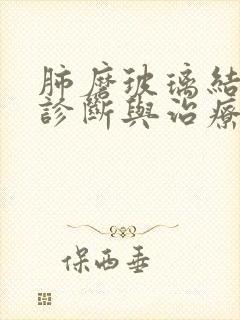 肺磨玻璃結
診斷與治療
保西垂